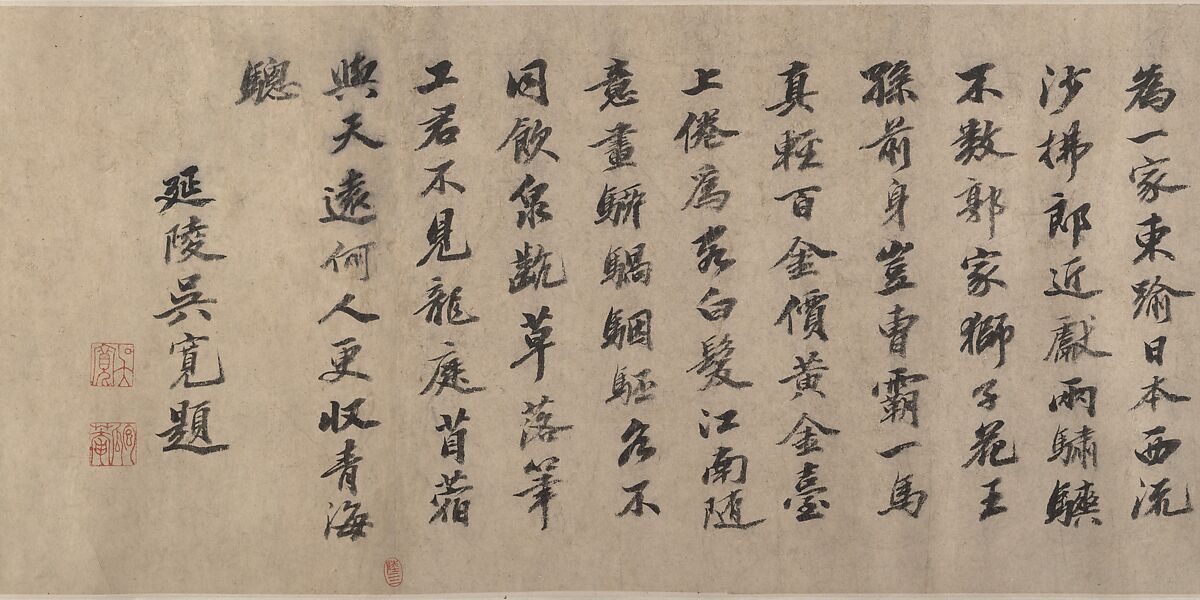 為一家東踰日本西流
沙拂郎近獻兩驌驦
不數郭家獅子花王
孫前身豈曹霸一馬
真輕百金價黃金臺
上倦為客白髮江南隨
意畫騈騧駰駓各不
同飲泉齕草落筆
工君不見龍庭苜蓿
與天遠何人更收青海
驄
延陵吳寬題